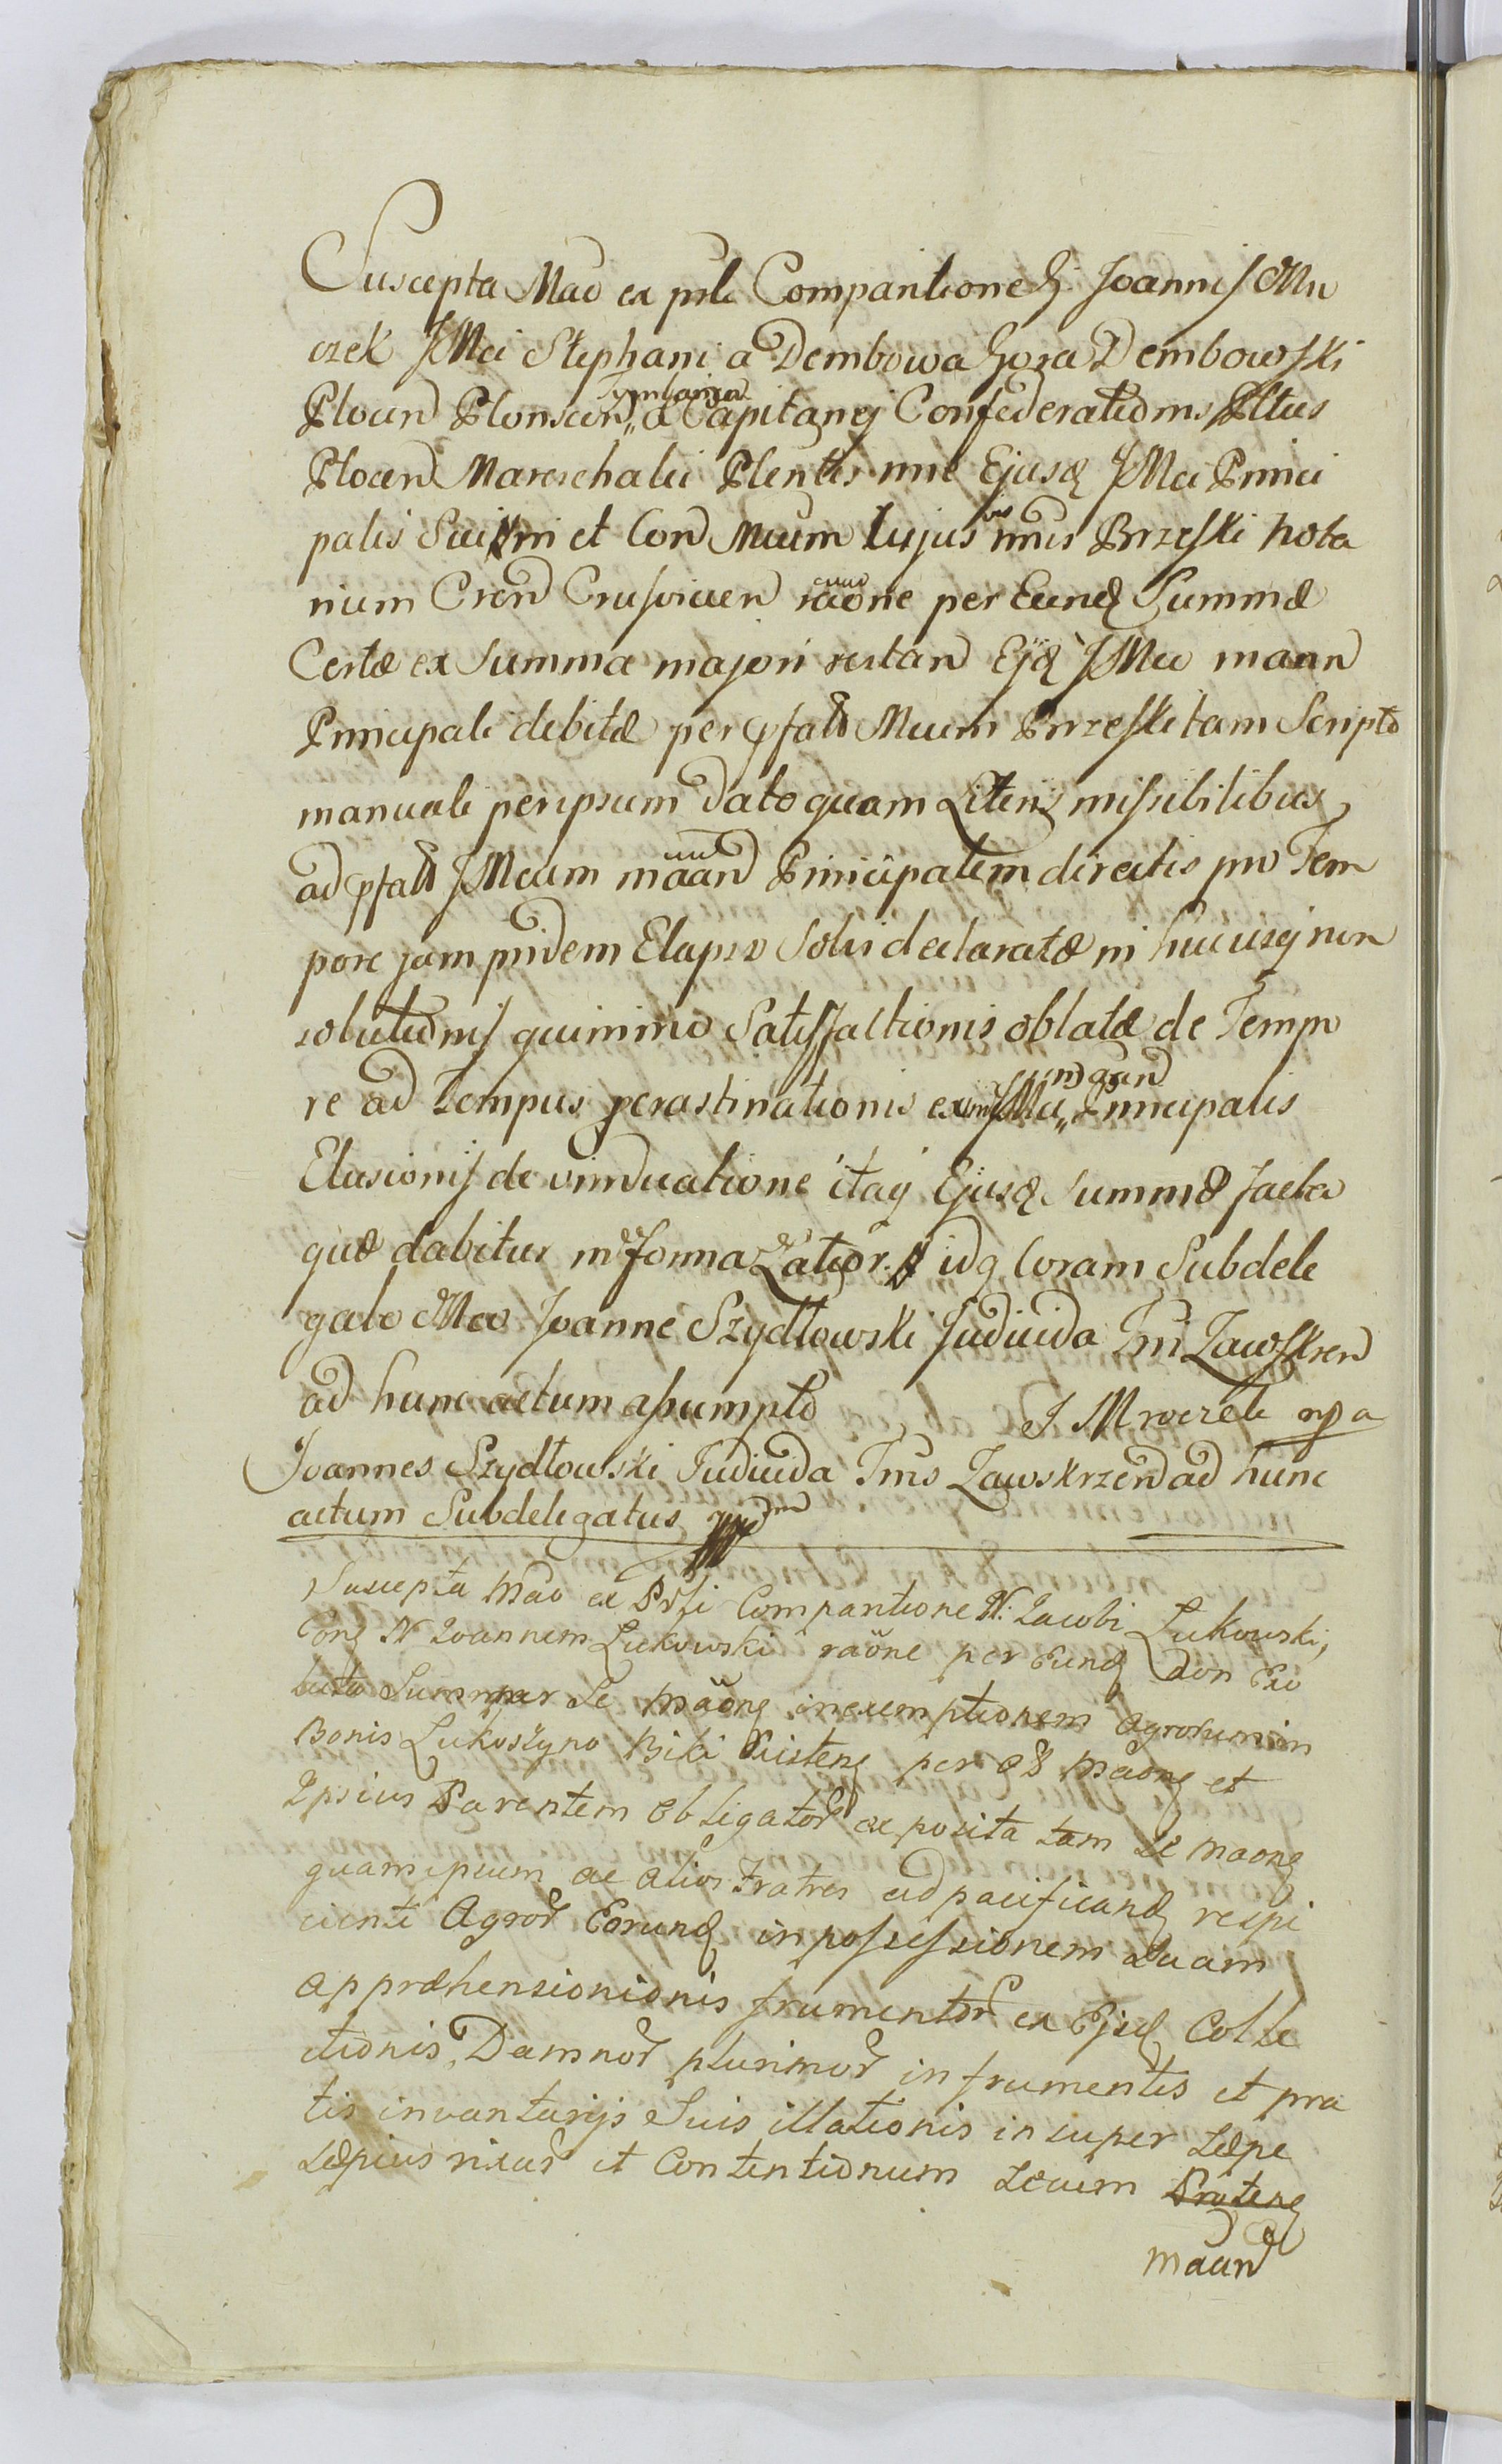 Suscepta Mão ex prli Comparitione G. Joannis Mro
czek JMci Stephani a Dembowa Gora Dembowski
Plocen Plonscen a Capitanej Confederationis Pltus
Plocen Mareschalci Plentis nne Ejusq JMci Princi
palis Sui et Con Mcum cujus nnis Brzeski nota
rium Cren Crusvicien raone per Eundq Summæ
Certæ ex Summa majori restan Ejq JMco maan
Principali debitæ per pfatt Mcum Brzeski tam Scripto
manuali peripsum dato quam Literis missibilibus
ad pfatt JMcum maan Principalem directis pro Tem
pore jam pridem Elapso Solvi declaratæ ni hucusq non
solutionis quinimo Satisfactionis oblatæ de Tempo
re ad tempus perastinationis JMci Principalis
Elusionis de vindicatione itaq Ejusq Summæ facta
quæ dabitur in Forma Latior. idq Coram Subdele
gato Mco Joanne Szydłowski Judicida Tri Zawskren
ad hunc actum assumpto J Mroczek mpa
Joannes Szydłowski Judicida Tris Zawskrzen ad hunc
actum Subdelegatus
Suscepta Mão ex Prsli Comparitione N. Jacobi Lukowski,
Cong N Joannem Lukowski raöne per Eundq non Exo
luta Summar Se maong inexemptionem Agrorum in
Bonis Lukoszyno Biki Existeng per maong et
Ipsius Parentem Obligator exposita tam Se maong
quam ipsum ac alios Fratres ad pacificandq respi
cienti Agror Eorundq in possessionem suam
appræhensionionis frumentor ex Ejsdq Colle
ctionis, Damnor plurimor in frumentis et pra
tis invantarijs Suis illationis insuper sæpe
sæpius rixar et Contentionum secum
maan